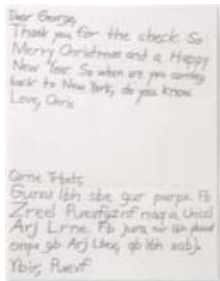 Dear George,
Thank you for the check. So
Merry Christmas and a Happy
New Year. So when are you coming
back to New York, do you know.
Love, Chris
Gurax lbh sbe gur purpx. Fb
Zreel Puevfgznf naq n
Arj Lrne. Fb jura ner lbh
onpx gb Arj Lbex, qb lbh xabj.
Ybir, Puevf